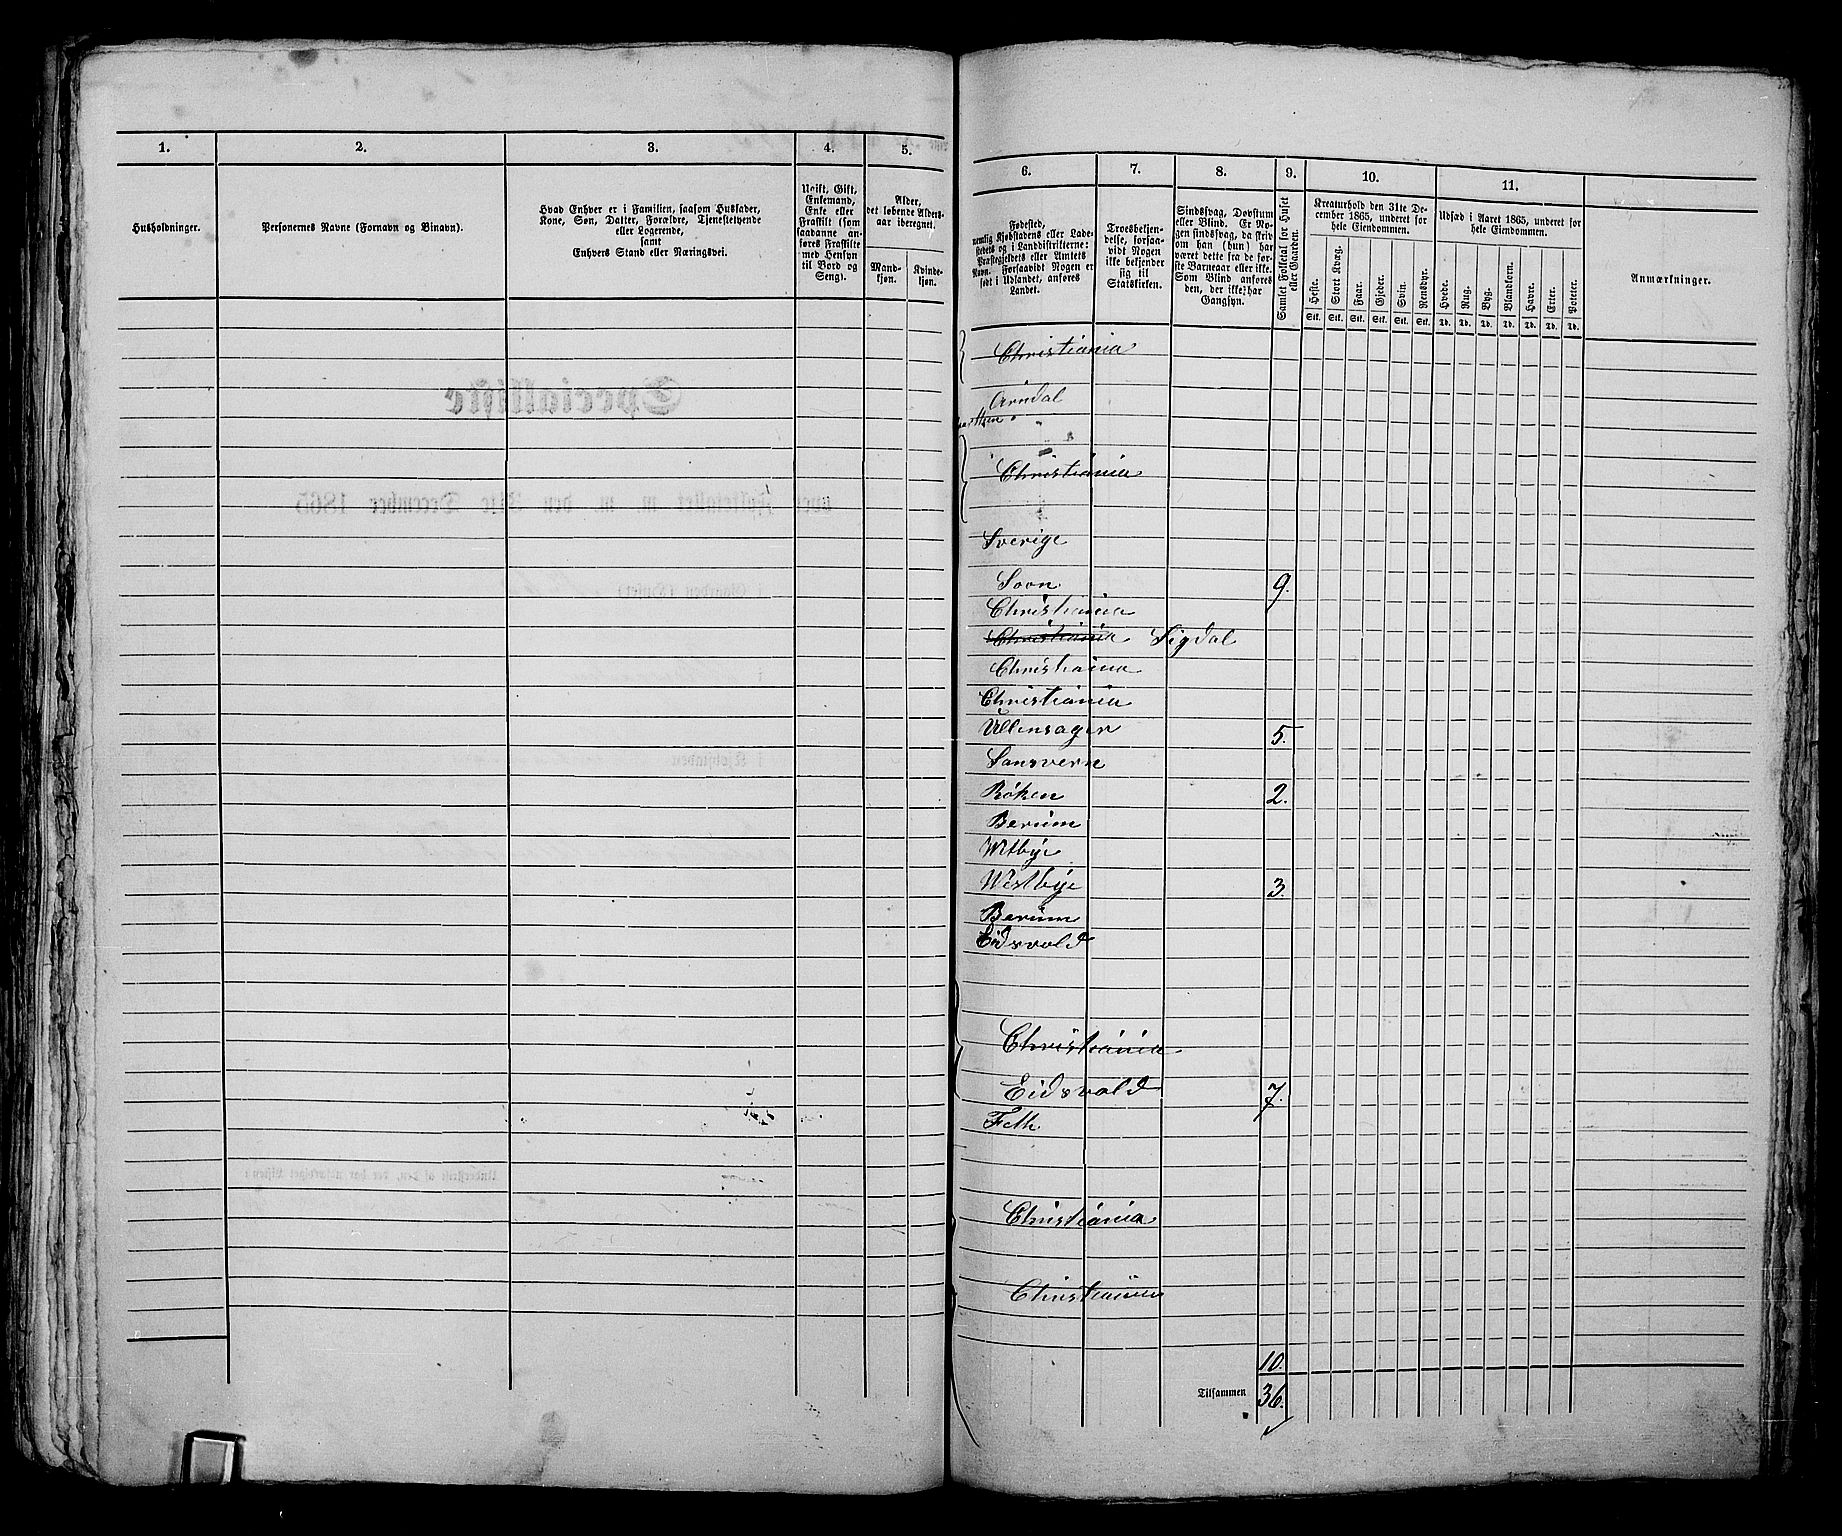 1.
2.
3.
4.
5.
Husholdninger.
Personernes Navne (Fornavn og Binavn).
Hvad Enhver er i Familien, saasom Husfader,
Kone, Søn, Datter, Forældre, Tjenestetyende
eller Logerende,
samt
Enhvers Stand eller Næringsvei.
Ugift, Gift,
Enkemand,
Enke eller
Fraskilt (som
saadanne an-
føres Fraskilte
med Hensyn
til Bord og
Seng).
Alder,
det løbende Alders-
aar iberegnet.
Mand-
kjøn.
Kvinde-
kjøn.
6.
7.
8.
9.
10.
11.
Fødested,
nemlig Kjøbstadens eller Lade-
stedets og i Landdistrikterne:
Præstegjeldets eller Amtets
Navn. Forsaavidt Nogen er
født i Udlandet, anføres
Landet.
Troesbekjen-
delse, forsaa-
vidt Nogen
ikke bekjender
sig til
Statskirken.
Sindssvag, Døvstum
eller Blind. Er No-
gen sindssvag, da skriv
om han (hun) har
været dette fra de før-
ste Barneaar eller ikke.
Som Blind anføres
den, der ikke har
Gangsyn.
Samlet Folketal for Huset
eller Gaarden.
Kreaturhold den 31te De-
cember 1865, underet for
hele Eiendommen.
Heste.
Stort Kvæg.
Faar.
Gjeder.
Svin.
Rensdyr.
Stk.
Stk.
Stk.
Stk.
Stk.
Stk.
Udsæd i Aaret 1865, underet for
hele Eiendommen.
Hvede.
Rug.
Byg.
Blandkorn.
Havre.
Erter.
Poteter.
Td.
Td.
Td.
Td.
Td.
Td.
Td.
Anmærkninger.
Christiania
Arndal
"
Christiania
Sverige
Soon 9.
Christiania
Christiania Sigdal
Christiania
Christiania
Ullensager 5.
Sansvern
Røken 2.
Berum
Wetbye
Westbye 3.
Berum
Eidsvold
Christiania
Eidsvold 7.
Feth
Christiania
Christiania
10.
Tilsammen 36.